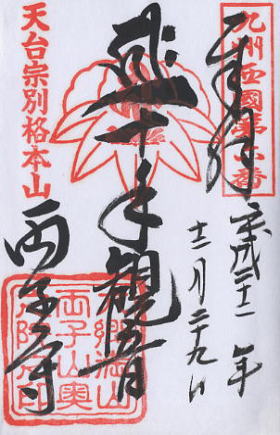 九州西國第六番
奉拝
平成二十二年
十二月二十九日
千手観音
天台宗別格本山
両子寺